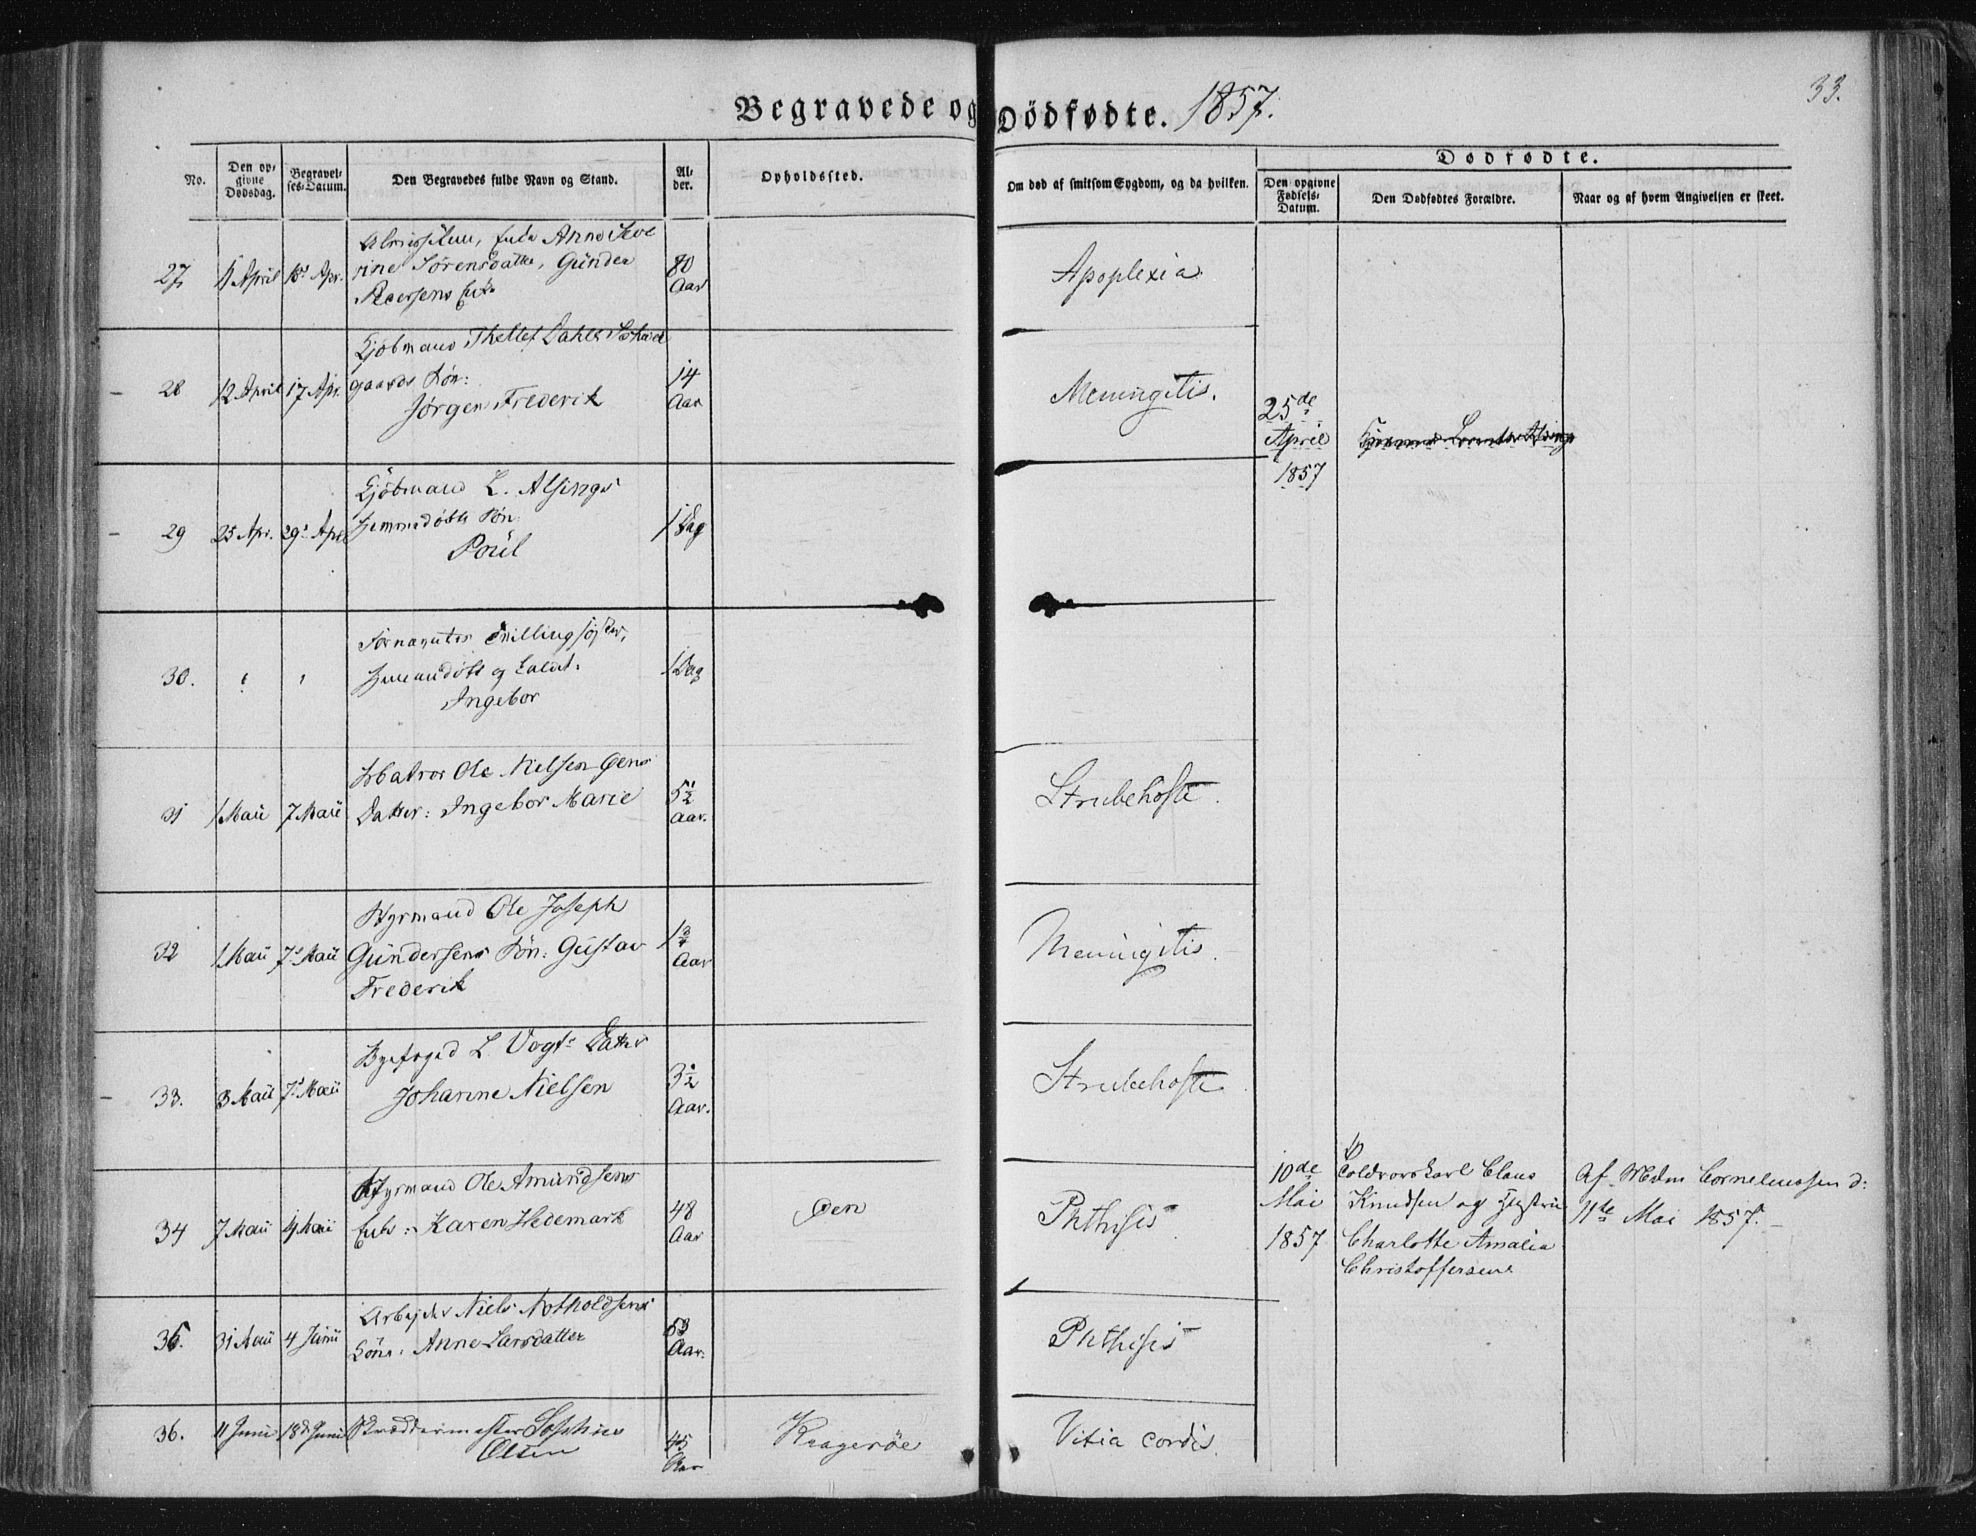 Begravede og Dödfødte. 1857.
33.
No.
Den op-
givne
Dødsdag.
Begravel-
ses-Datum.
Den Begravedes fulde Navn og Stand.
Al-
der.
Opholdssted.
Om død af smitsom Sygdom, og da hvilken.
Dødfødte.
Den opgivne
Fødsels-
Datum.
Den Dødfødtes Forældre.
Naar og af hvem Angivelsen er skeet.
27 April Apr. Enke Anne Seve
rine Sørensdatter, Gunder
80 Aar
Apoplexia
28 12 April 17 Apr.
Kjøbmand Thellef Dahls
gaards Søn:
Jørgen Frederik
14 Aar
Meningitis.
25de
April
1857
29 25 Apr. 29 Apr.
Kjöbmand L. Alsings
hjemmedøbte Søn
Poul
1 Dag
30. Tvillingsøster,
hjemmedøbt og kaldt.
Ingebor
1 Dag
31 1 Maii 7 Maii
Ole Nielsen
Datter: Ingebor Marie
5½ Aar.
Strubehoste.
32 1 Maii 7 Maii
Styrmand Ole Joseph
Gundersens Søn: Gustav
Frederik
1¾ Aar
Meningitis.
33. 3 Maii 7 Maii
Byefoged L. Vogts Datter
Johanne Nielsen
3½ Aar.
Strubehoste
34 7 Maii Maii
Styrmand Ole Amundsens
Enke: Karen Hedemark
48 Aar
Øen
Phthisis
10de
Mai
1857
Claus
Knudsen og Hustru
Charlotte Amalia
Christoffersen
Af Mdm Cornelinssen d:
11te Mai 1857.
35. 31 Maii 4 Junii
Arbejder Niels Notholdsens
Kone: Anne Larsdatter
53 Aar.
Phthisis
36. 11 Juni 18 Juni
Skræddermester
Olsen
45 Aar
Kragerøe
Vitia cordis.